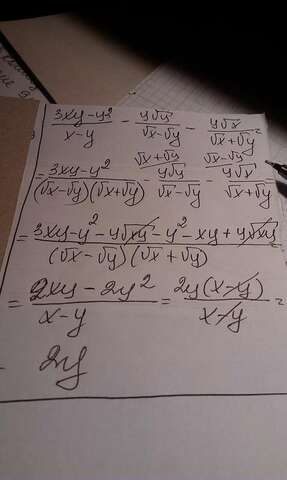 (3xy-y²)/(x-y) - (y√y)/(√x-√y) - (y√x)/(√x+√y) =
= (3xy-y²)/((√x-√y)(√x+√y)) - (√x+√y) (y√y)/(√x-√y) - (√x-√y) (y√x)/(√x+√y)
= (3xy-y²-y√xy-y²-xy+y√xy)/((√x-√y)(√x+√y)) =
= (2xy-2y²)/(x-y) = (2y(x-y))/(x-y) =
2y